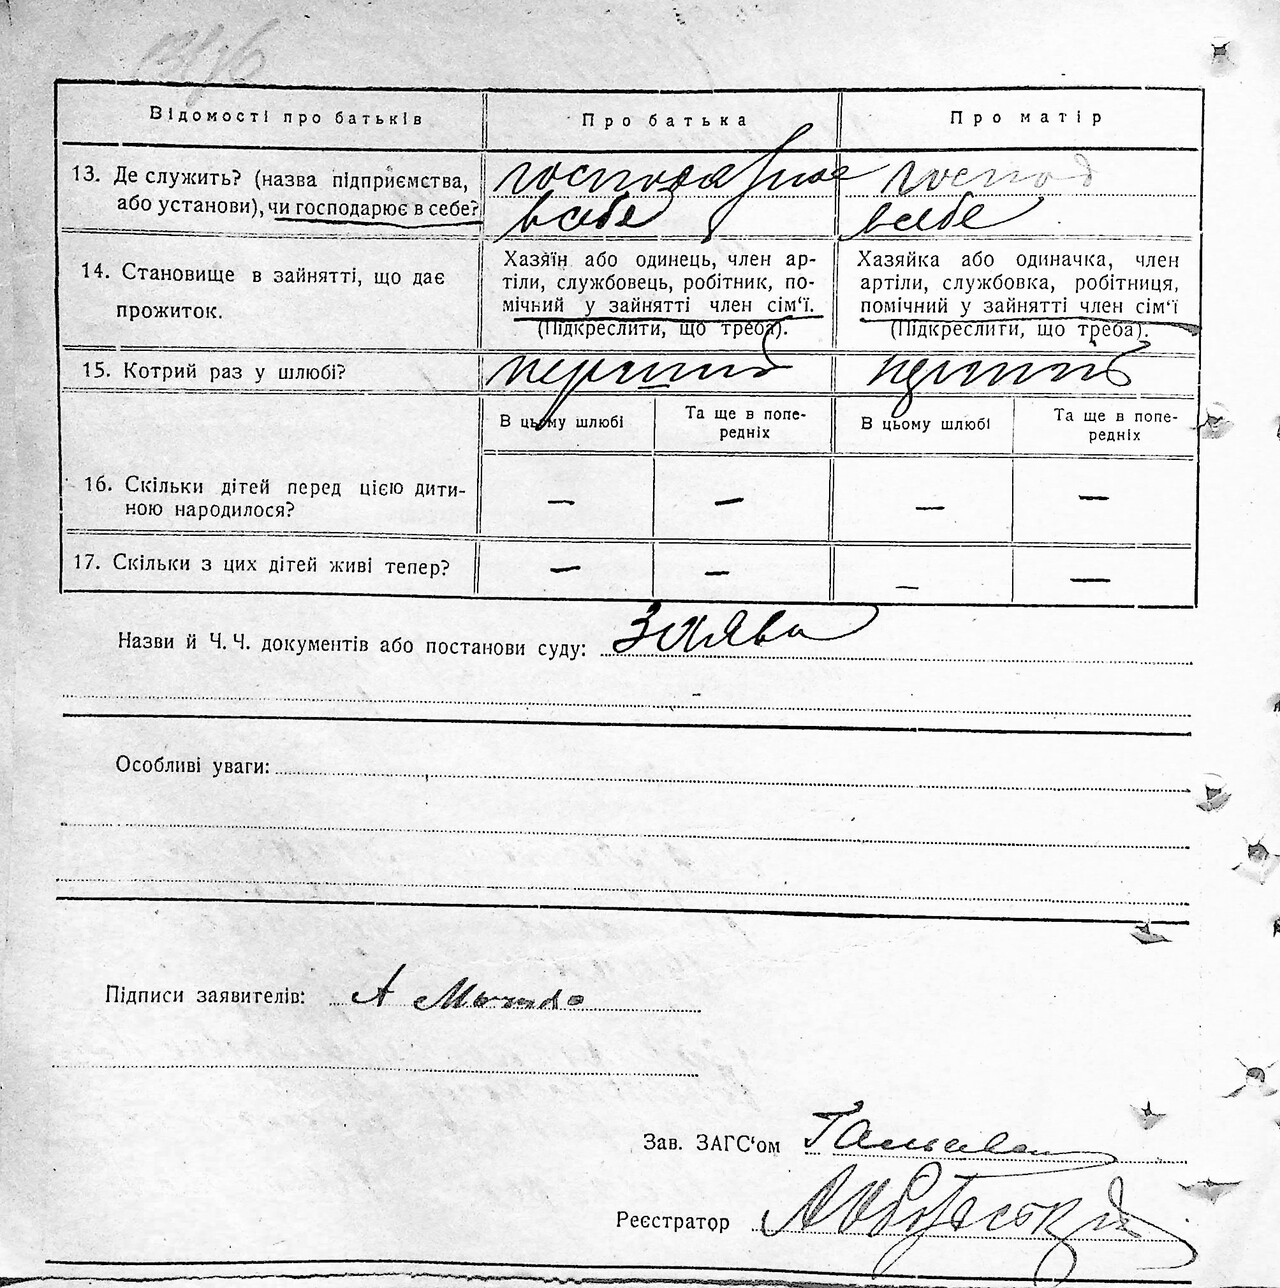 Відомості про батьків
Про батька
Про матір
13. Де служить? (назва підприємства,
або установи), чи господарює в себе?
господарює
в себе
господ
в себе
14. Становище в зайнятті, що дає
прожиток.
Хазяїн або одинець, член ар-
тіли, службовець, робітник, по-
мічний у зайнятті член сім'ї.
(Підкреслити, що треба).
Хазяйка або одиначка, член
артіли, службовка, робітниця,
помічний у зайнятті член сім'ї
(Підкреслити, що треба).
15. Котрий раз у шлюбі?
перший
перший
В цьому шлюбі
Та ще в попе-
редніх
В цьому шлюбі
Та ще в попе-
редніх
16. Скільки дітей перед цією дити-
ною народилося?
— — — —
17. Скільки з цих дітей живі тепер?
— — — —
Назви й Ч. Ч. документів або постанови суду: Заява
Особливі уваги:
Підписи заявителів: А
Зав. ЗАГС'ом
Реєстратор